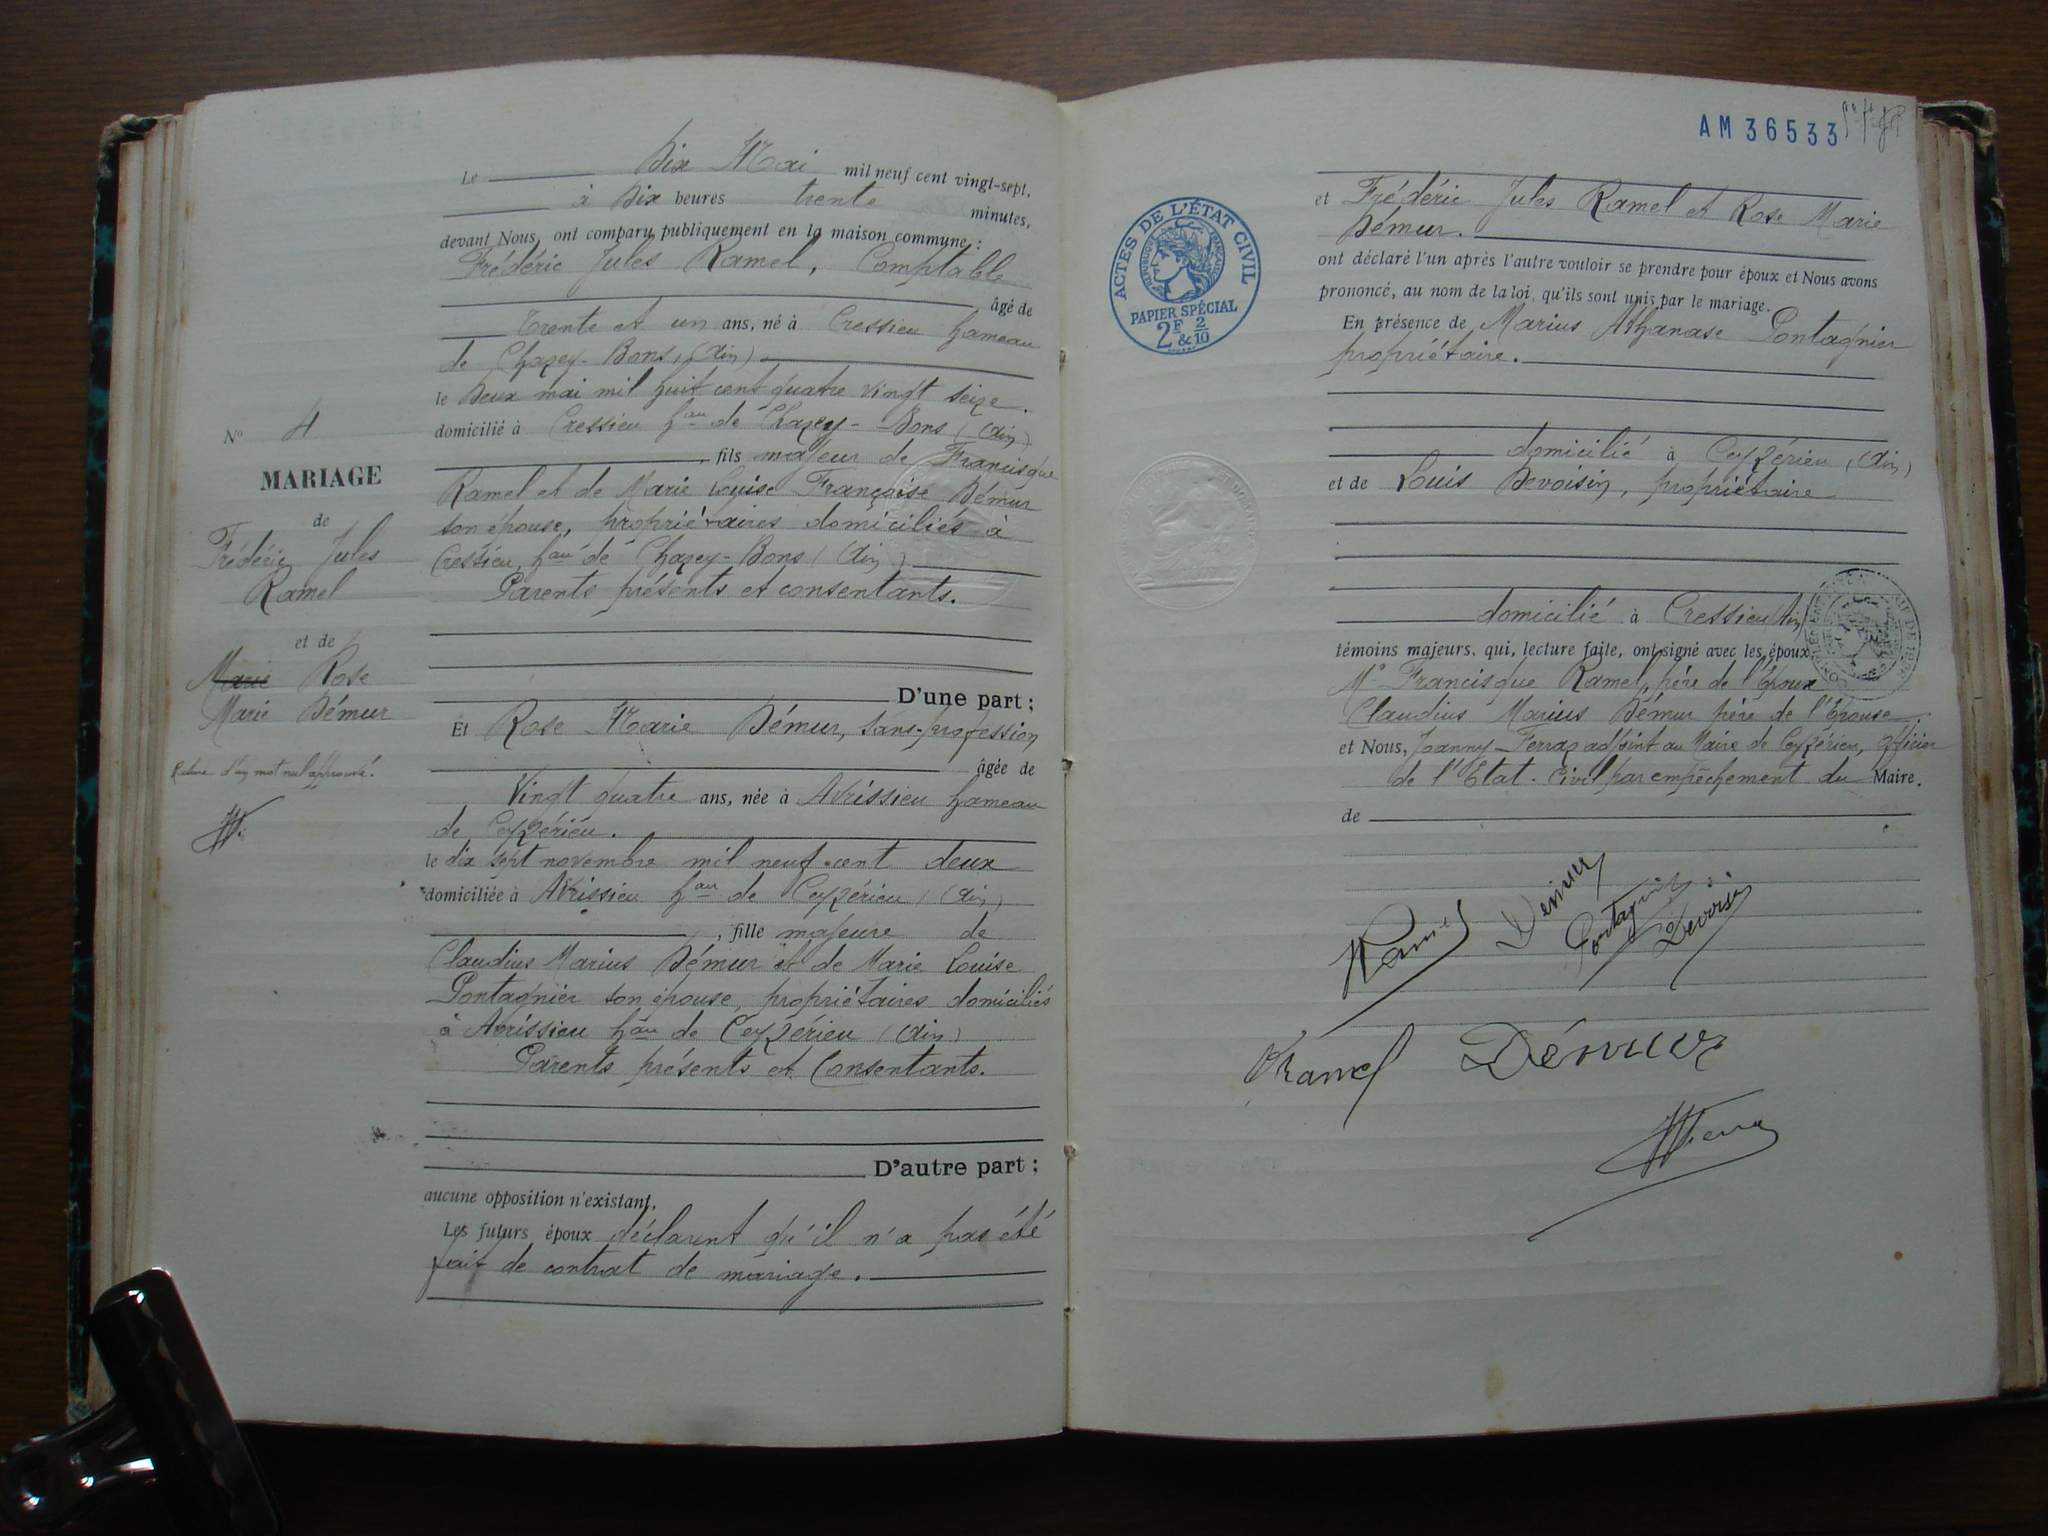 Le Dix Mai mil neuf cent vingt-sept,
à Dix heures trente minutes,
devant Nous, ont comparu publiquement en la maison commune :
Frédéric Jules Ramel, Comptable
âgé de
Trente et un ans, né à Cressieu hameau
de Chazey-Bons, (Ain).
le Deux mai mil huit cent quatre vingt seize.
domicilié à Cressieu hau de Chazey-Bons (Ain)
, fils majeur de Francisque
Ramel et de Marie Louise Françoise Démur
son épouse, propriétaires domiciliés à
Cressieu, hau de Chazey-Bons (Ain)
Parents présents et consentants.
D'une part :
Et Rose Marie Démur, sans-profession
âgée de
Vingt quatre ans, née à Avrissieu hameau
de Ceyzérieu.
le dix sept novembre mil neuf cent deux
domiciliée à Avrissieu hau de Ceyzérieu (Ain)
, fille majeure de
Claudius Marius Démur et de Marie Louise
Pontagnier son épouse, propriétaires domiciliés
à Avrissieu hau de Ceyzérieu (Ain)
Parents présents et Consentants.
D'autre part :
aucune opposition n'existant,
Les futurs époux déclarent qu'il n'a pas été
fait de contrat de mariage.
No 4
MARIAGE
de
Frédéric Jules
Ramel
et de
Marie Rose
Marie Démur
Rature d'un mot nul approuvé.
AM 36533
ACTES DE L'ÉTAT CIVIL
RÉPUBLIQUE FRANÇAISE
PAPIER SPÉCIAL
2F & 2/10
et Frédéric Jules Ramel et Rose Marie
Démur.
ont déclaré l'un après l'autre vouloir se prendre pour époux et Nous avons
prononcé, au nom de la loi, qu'ils sont unis par le mariage.
En présence de Marius Athanase Pontagnier
propriétaire.
domicilié à Ceyzérieu, (Ain)
et de Louis Devoisin, propriétaire
domicilié à Cressieu (Ain)
témoins majeurs, qui, lecture faite, ont signé avec les époux,
Mr Francisque Ramel, père de l'époux
Claudius Marius Démur père de l'épouse
et Nous, Janny-Ferraz adjoint au Maire de Ceyzérieu, Officier
de l'Etat-Civil par empêchement du Maire.
de
Ramel Demur Pontagnier Devoisin
Ramel Démur